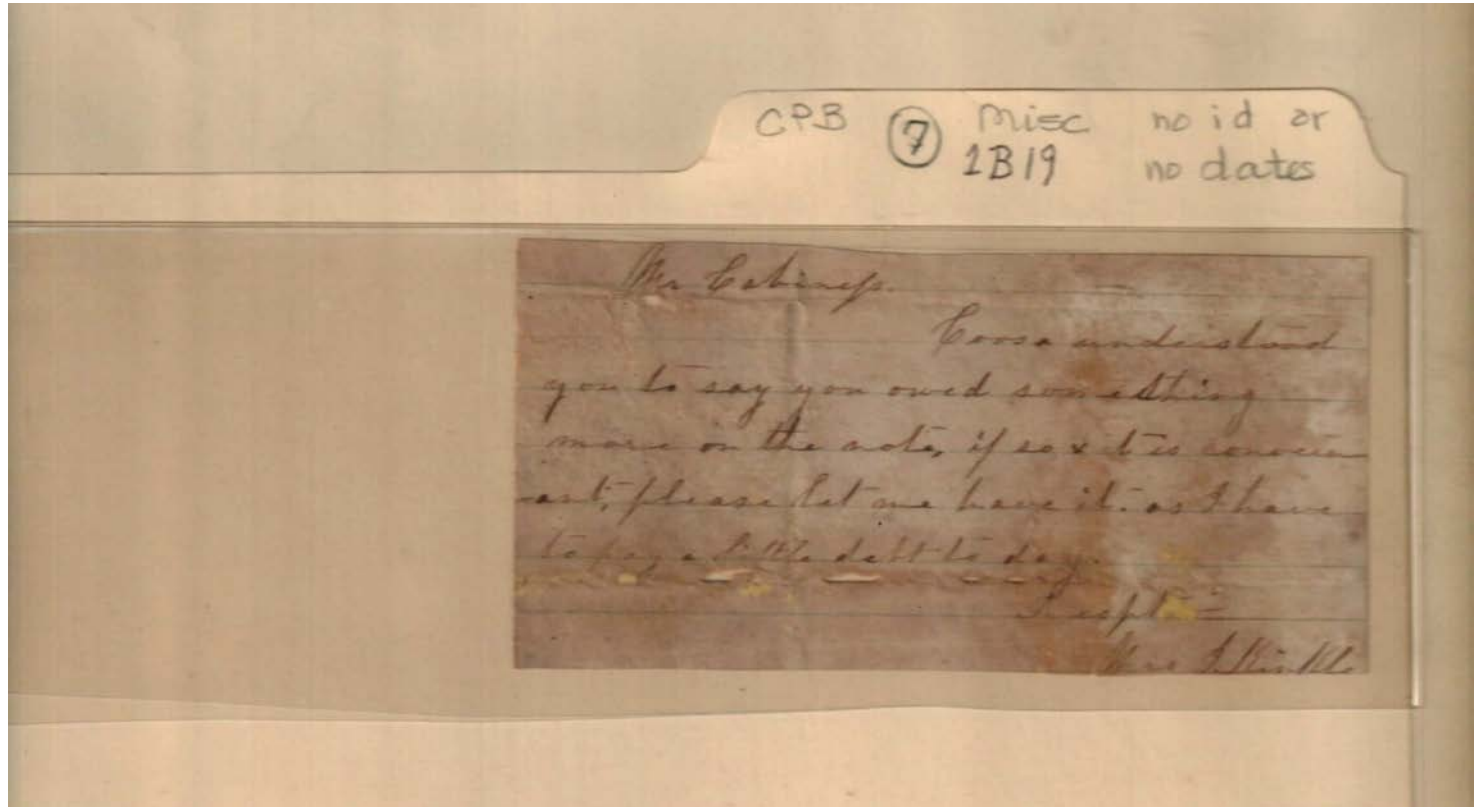 CPB 7 Misc no id or
2B19 no dates
Mr Cabiness.
Coosa understood
you to say you owed something
more on the note, if so & it is convien
ant, please let me have it. as I have
to pay a little debt to day.
Respt
Mrs